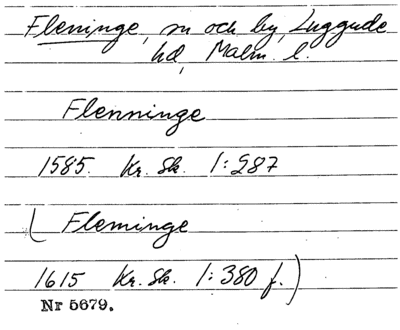 Fleninge, sn och by, Luggude
hd, Malm. l.
Flenninge
1585. Kr. Sk. 1:287
( Fleminge
1615 Kr. Sk. 1:380 f.)
Nr 5679.